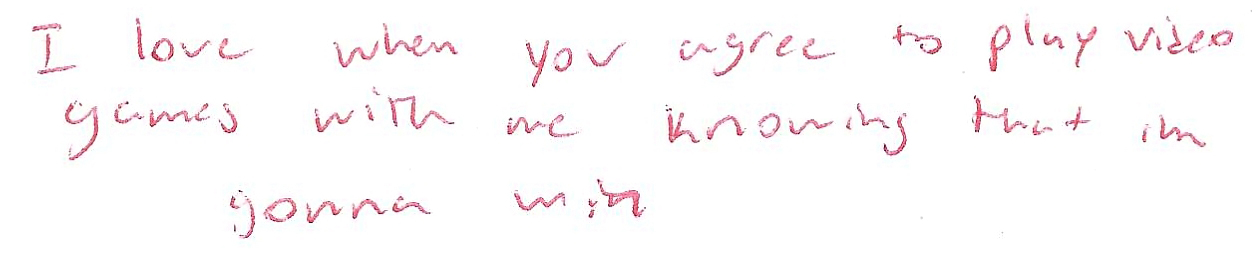 I love when you agree to play video
games with me knowing that im
gonna win